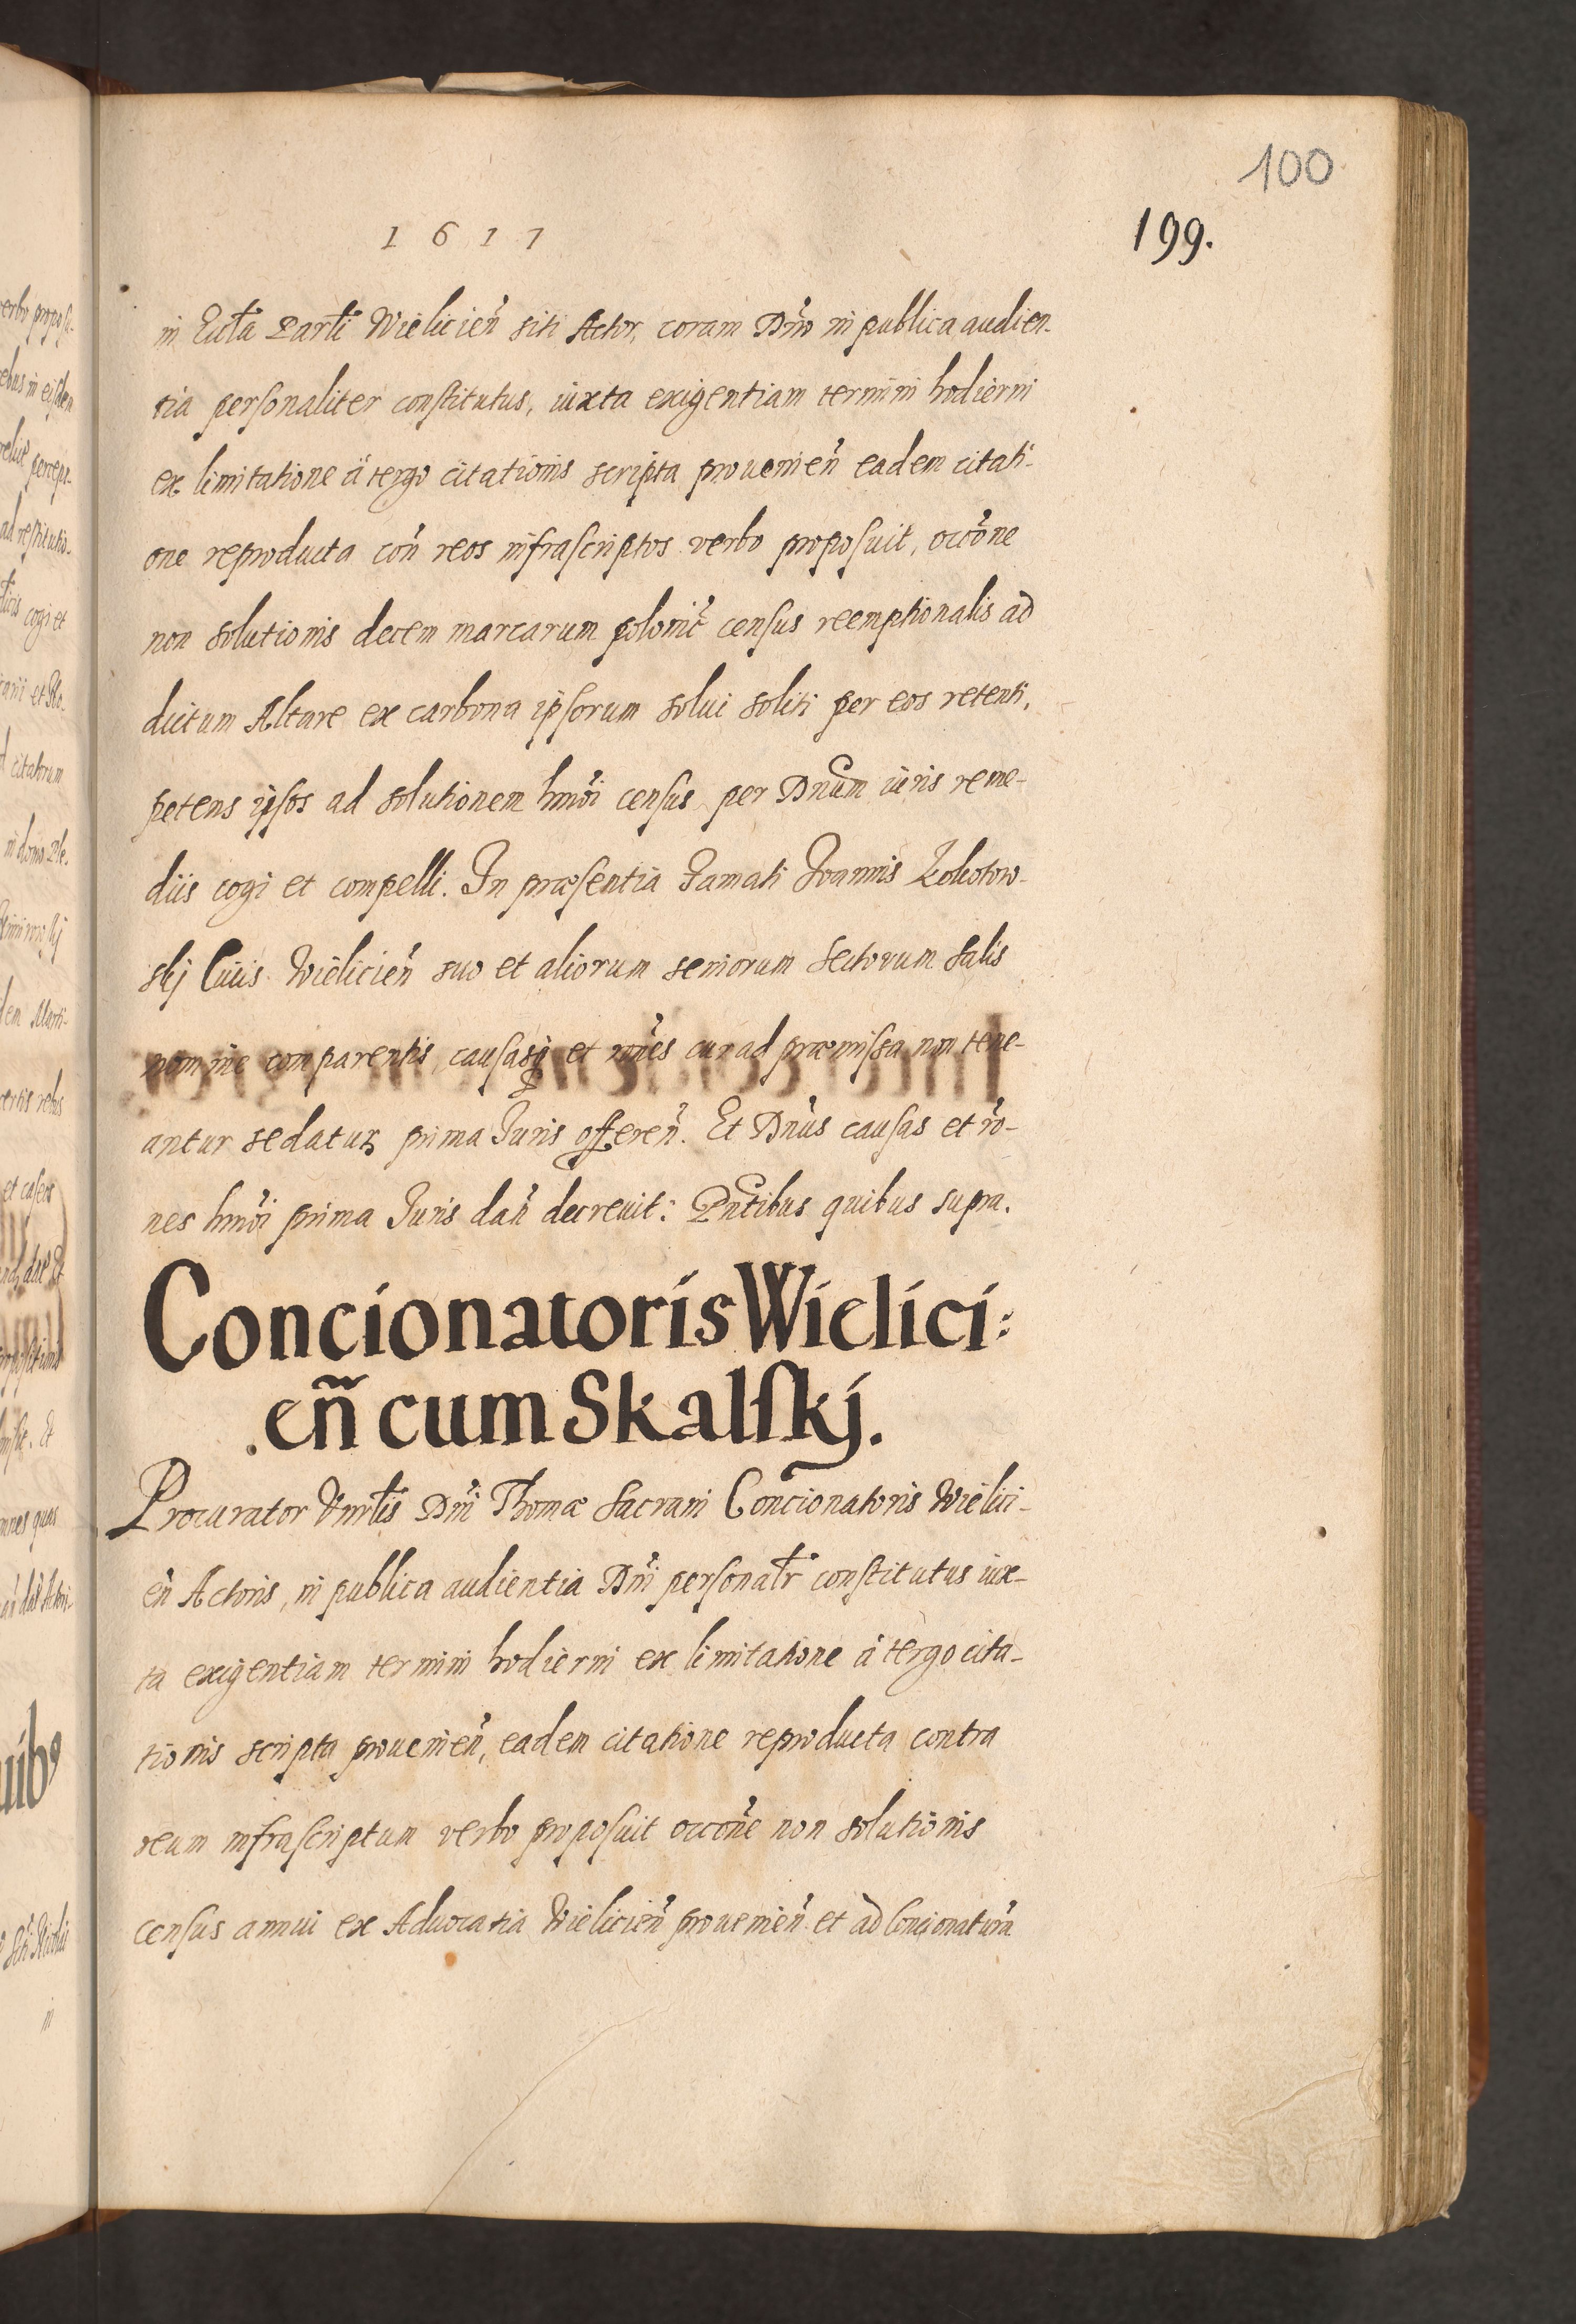 100
1617
199.
in Eccl̃a Parr̃li Wielicień siti Actor, coram Dño in publica audien-
tia personaliter constitutus, iuxta exigentiam termini hodierni
ex limitatione à tergo citationis scripta prouenień eadem citati-
one reproducta coñ reos infrascriptos verbo proposuit, occõne
non solutionis decem marcarum polonic̃ census reemptionalis ad
dictum Altare ex carbona ipsorum solui soliti per eos retenti,
petens ipsos ad solutionem hmõi census per Dnũm iuris reme-
diis cogi et compelli. In præsentia Famati Joannis
skj Ciuis Wielicień suo et aliorum seniorum Sectorum Salis
nomine comparentis, causasq̃ et rõnes cur ad præmissa non tene-
antur se daturũ prima Juris offereñ. Et Dñus causas et rõ-
nes hmõi prima Juris dañ decreuit: Pñtibus quibus supra.
Concionatoris Wielici:
.eñ cum Skalskj.
Procurator Vnr̃lis Dñi Thomæ Sacrani Concionatoris Wielici-
eñ Actoris, in publica audientia Dñi personalr̃ constitutus iux-
ta exigentiam termini hodierni ex limitatione à tergo cita-
tionis scripta prouenień, eadem citatione reproducta contra
reum infrascriptum verbo proposuit occõne non solutionis
census annui ex Aduocatia Wielicień prouenień et ad Concionaturã